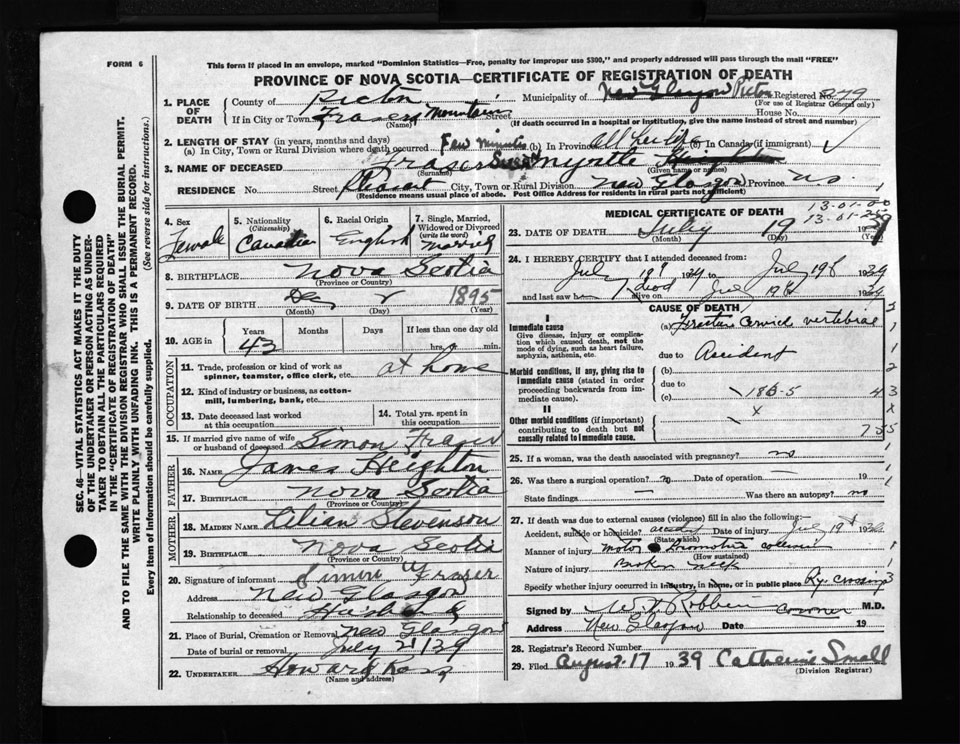 FORM 6
This form if placed in an envelope, marked "Dominion Statistics—Free, penalty for improper use $300," and properly addressed will pass through the mail "FREE"
PROVINCE OF NOVA SCOTIA—CERTIFICATE OF REGISTRATION OF DEATH
1. PLACE OF DEATH
County of Pictou Municipality of New Glasgow Pictou Registered No. 279
(For use of Registrar General only)
If in City or Town Frasers Mountain Street House No.
(Name) (If death occurred in a hospital or institution, give the name instead of street and number)
2. LENGTH OF STAY (in years, months and days)
(a) In City, Town or Rural Division where death occurred Few minutes (b) In Province all her life (c) In Canada (if immigrant)
3. NAME OF DECEASED Fraser Myrtle
(Surname) (Given name or names)
RESIDENCE No. Street Pleasant City, Town or Rural Division New Glasgow Province N.S.
(Residence means usual place of abode. Post Office Address for residents in rural parts not sufficient)
4. Sex Female
5. Nationality (Citizenship) Canadian
6. Racial Origin English
7. Single, Married, Widowed or Divorced (write the word) Married
8. BIRTHPLACE Nova Scotia
(Province or Country)
9. DATE OF BIRTH 1895
(Month) (Day) (Year)
10. AGE in Years Months Days If less than one day old
43 hrs. min.
OCCUPATION
11. Trade, profession or kind of work as spinner, teamster, office clerk, etc. at home
12. Kind of industry or business, as cotton-mill, lumbering, bank, etc.
13. Date deceased last worked at this occupation
14. Total yrs. spent in this occupation
15. If married give name of wife or husband of deceased Simon Fraser
FATHER
16. NAME James Heighton
17. BIRTHPLACE Nova Scotia
(Province or Country)
MOTHER
18. MAIDEN NAME Lilian Stevenson
19. BIRTHPLACE Nova Scotia
(Province or Country)
20. Signature of informant Simon Frazer
Address New Glasgow
Relationship to deceased Husband
21. Place of Burial, Cremation or Removal New Glasgow
Date of burial or removal July 21 39
22. UNDERTAKER Howard
(Name and address)
MEDICAL CERTIFICATE OF DEATH
13-01-00
13-01-2
23. DATE OF DEATH July 19 1939
(Month) (Day) (Year)
24. I HEREBY CERTIFY that I attended deceased from:
July 19th 1939 to July 19th 1939
and last saw h alive on July 19th 1939
CAUSE OF DEATH
I
Immediate cause
Give disease, injury or complication which caused death, not the mode of dying, such as heart failure, asphyxia, asthenia, etc.
(a) Fracture cervical vertebrae
due to Accident
Morbid conditions, if any, giving rise to immediate cause (stated in order proceeding backwards from immediate cause).
(b)
due to
(c) 186-5
II
Other morbid conditions (if important) contributing to death but not causally related to immediate cause.
25. If a woman, was the death associated with pregnancy? no
26. Was there a surgical operation? no Date of operation
State findings Was there an autopsy? no
27. If death due to external causes (violence) fill in also the following:—
Accident, suicide or homicide? accident Date of injury July 19th 1939
(State which)
Manner of injury motor locomotive collision
(How sustained)
Nature of injury Broken neck
Specify whether injury occurred in industry, in home, or in public place Ry. crossing
Signed by Coroner M.D.
Address New Glasgow Date 19
28. Registrar's Record Number
29. Filed August 17 1939 Catherine Small
(Division Registrar)
SEC. 46—VITAL STATISTICS ACT MAKES IT THE DUTY
OF THE UNDERTAKER OR PERSON ACTING AS UNDER-
TAKER TO OBTAIN ALL THE PARTICULARS REQUIRED
IN THE "CERTIFICATE OF REGISTRATION OF DEATH"
AND TO FILE THE SAME WITH THE DIVISION REGISTRAR WHO SHALL ISSUE THE BURIAL PERMIT.
WRITE PLAINLY WITH UNFADING INK. THIS IS A PERMANENT RECORD.
Every item of Information should be carefully supplied. (See reverse side for instructions.)